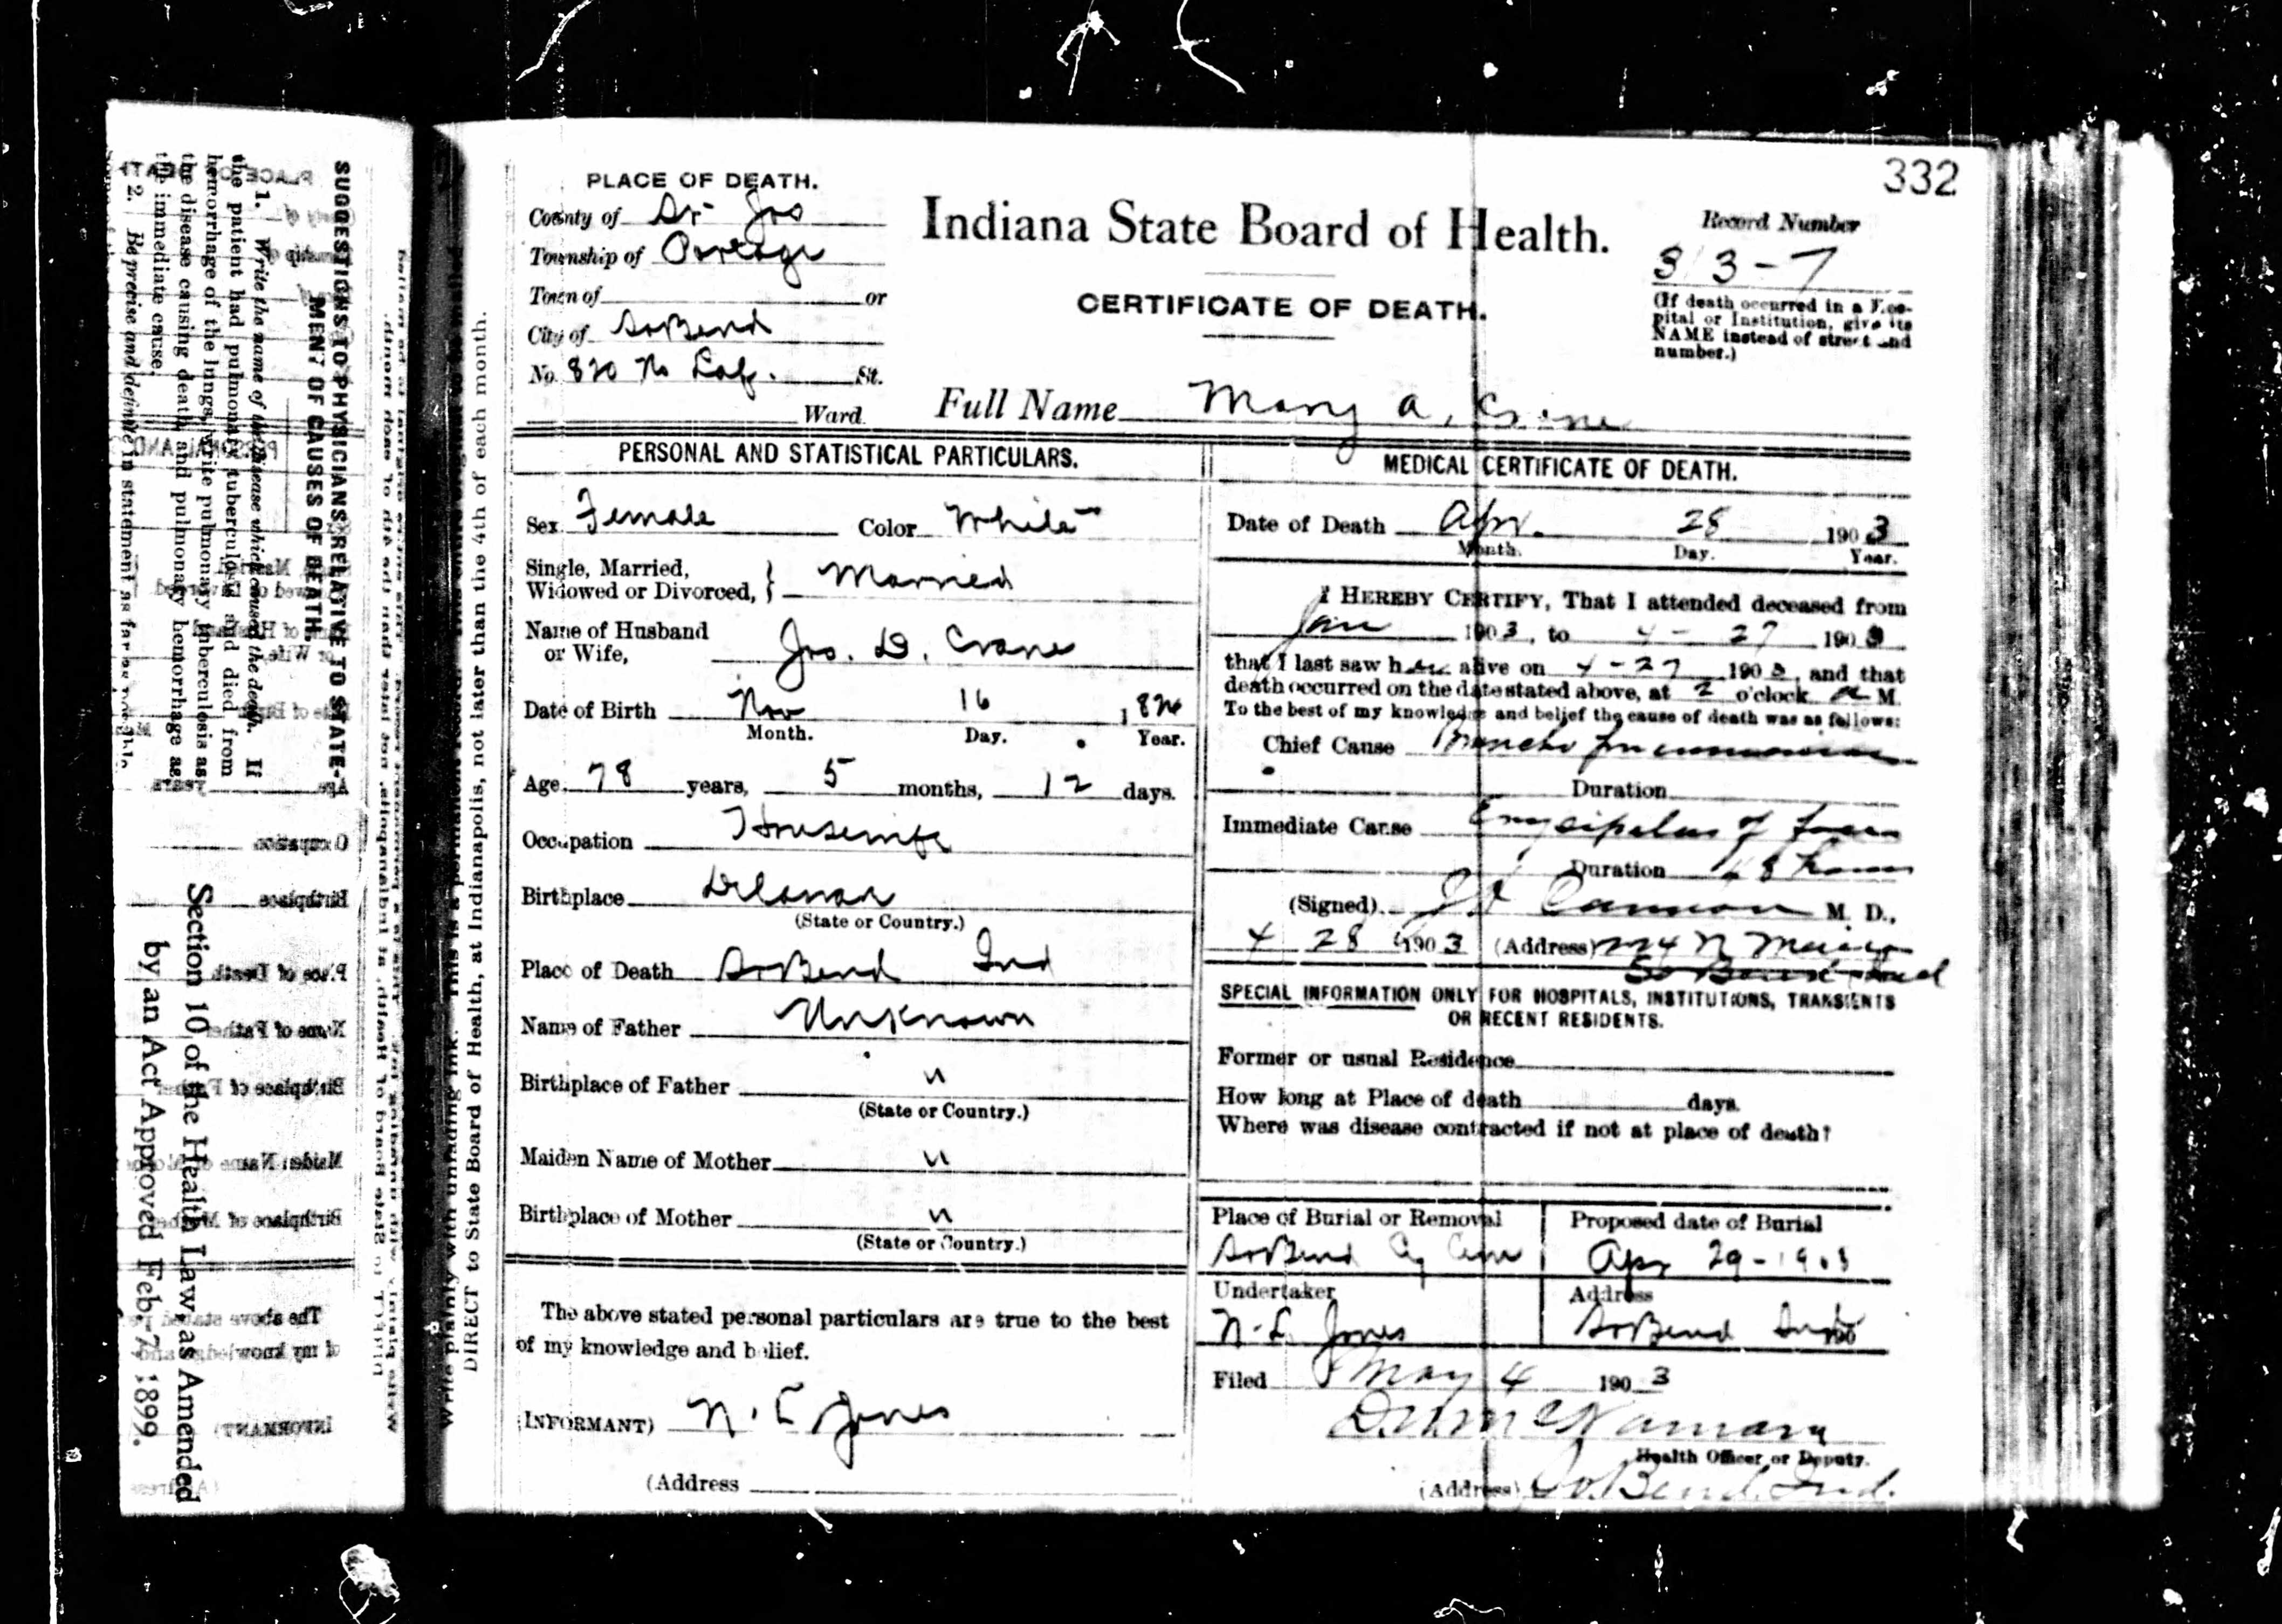 332
PLACE OF DEATH.
County of St Jos
Township of Portage
Town of or
City of So Bend
No. 820 No Laf. St.
Ward
Indiana State Board of Health.
CERTIFICATE OF DEATH.
Record Number
313-7
(If death occurred in a Hos-
pital or Institution, give its
NAME instead of street and
number.)
Full Name Mary A. Crane
PERSONAL AND STATISTICAL PARTICULARS.
Sex Female Color White
Single, Married,
Widowed or Divorced, } Married
Name of Husband
or Wife, Jos. D. Crane
Date of Birth Nov 16 1824
Month. Day. Year.
Age 78 years, 5 months, 12 days.
Occupation Housewife
Birthplace
(State or Country.)
Place of Death So Bend Ind
Name of Father Unknown
Birthplace of Father "
(State or Country.)
Maiden Name of Mother "
Birthplace of Mother "
(State or Country.)
The above stated personal particulars are true to the best
of my knowledge and belief.
(INFORMANT) N. L Jones
(Address
MEDICAL CERTIFICATE OF DEATH.
Date of Death Apr. 28 1903
Month. Day. Year.
I HEREBY CERTIFY, That I attended deceased from
Jan 1903, to 4 - 27 1903
that I last saw her alive on 4-27 1903, and that
death occurred on the date stated above, at 2 o'clock a M.
To the best of my knowledge and belief the cause of death was as follows:
Chief Cause Broncho pneumonia
Duration
Immediate Cause Erysipelas of face
Duration 48 hours
(Signed) Cannon M. D.,
4 28 1903 (Address) N Main
So Bend Ind
SPECIAL INFORMATION ONLY FOR HOSPITALS, INSTITUTIONS, TRANSIENTS
OR RECENT RESIDENTS.
Former or usual Residence
How long at Place of death days.
Where was disease contracted if not at place of death?
Place of Burial or Removal
So Bend Cy Cem
Proposed date of Burial
Apr 29-1903
Undertaker
N. L. Jones
Address
So Bend Ind
190
Filed May 4 1903
McNamara
Health Officer or Deputy.
(Address) So. Bend. Ind.
DIRECT to State Board of Health, at Indianapolis, not later than the 4th of each month.
SUGGESTIONS TO PHYSICIANS RELATIVE TO STATE-
MENT OF CAUSES OF DEATH.
1. Write the name of the disease which caused the death. If
the patient had pulmonary tuberculosis and died from
hemorrhage of the lungs, write pulmonary tuberculosis as
the disease causing death and pulmonary hemorrhage as
the immediate cause.
2. Be precise and definite in statement as far as possible.
Section 10 of the Health Law, as Amended
by an Act Approved Feb. 7, 1899.